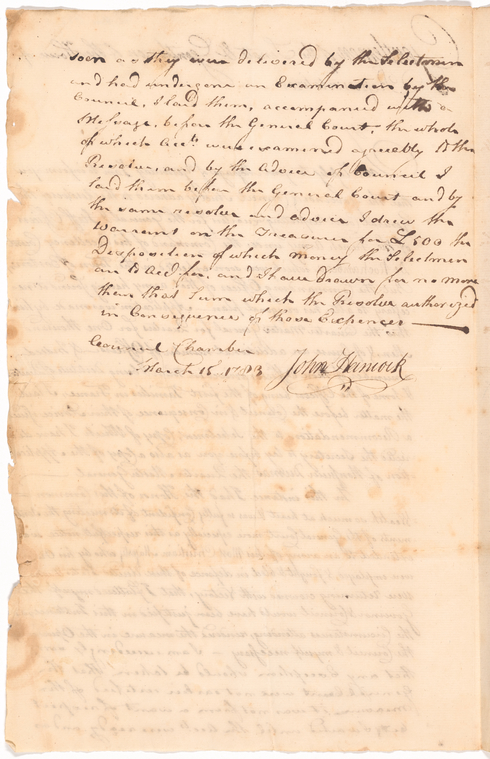 soon as they were delivered by the Selectmen
and had undergone an Examination by the
Council, I laid them, accompanied with a
Message, before the General Court, the whole
of which Accts. were examined agreeably to the
Resolve, and by the Advice of Council I
laid them before the General Court and by
the same resolve and advice I drew the
Warrant on the Treasurer for £500 the
Disposition of which money the Selectmen
are to Acct. for, and I have Drawn for no more
than that Sum which the Resolve authorized
in Consequence of those Expences
Council Chamber
March 15, 1783 John Hancock